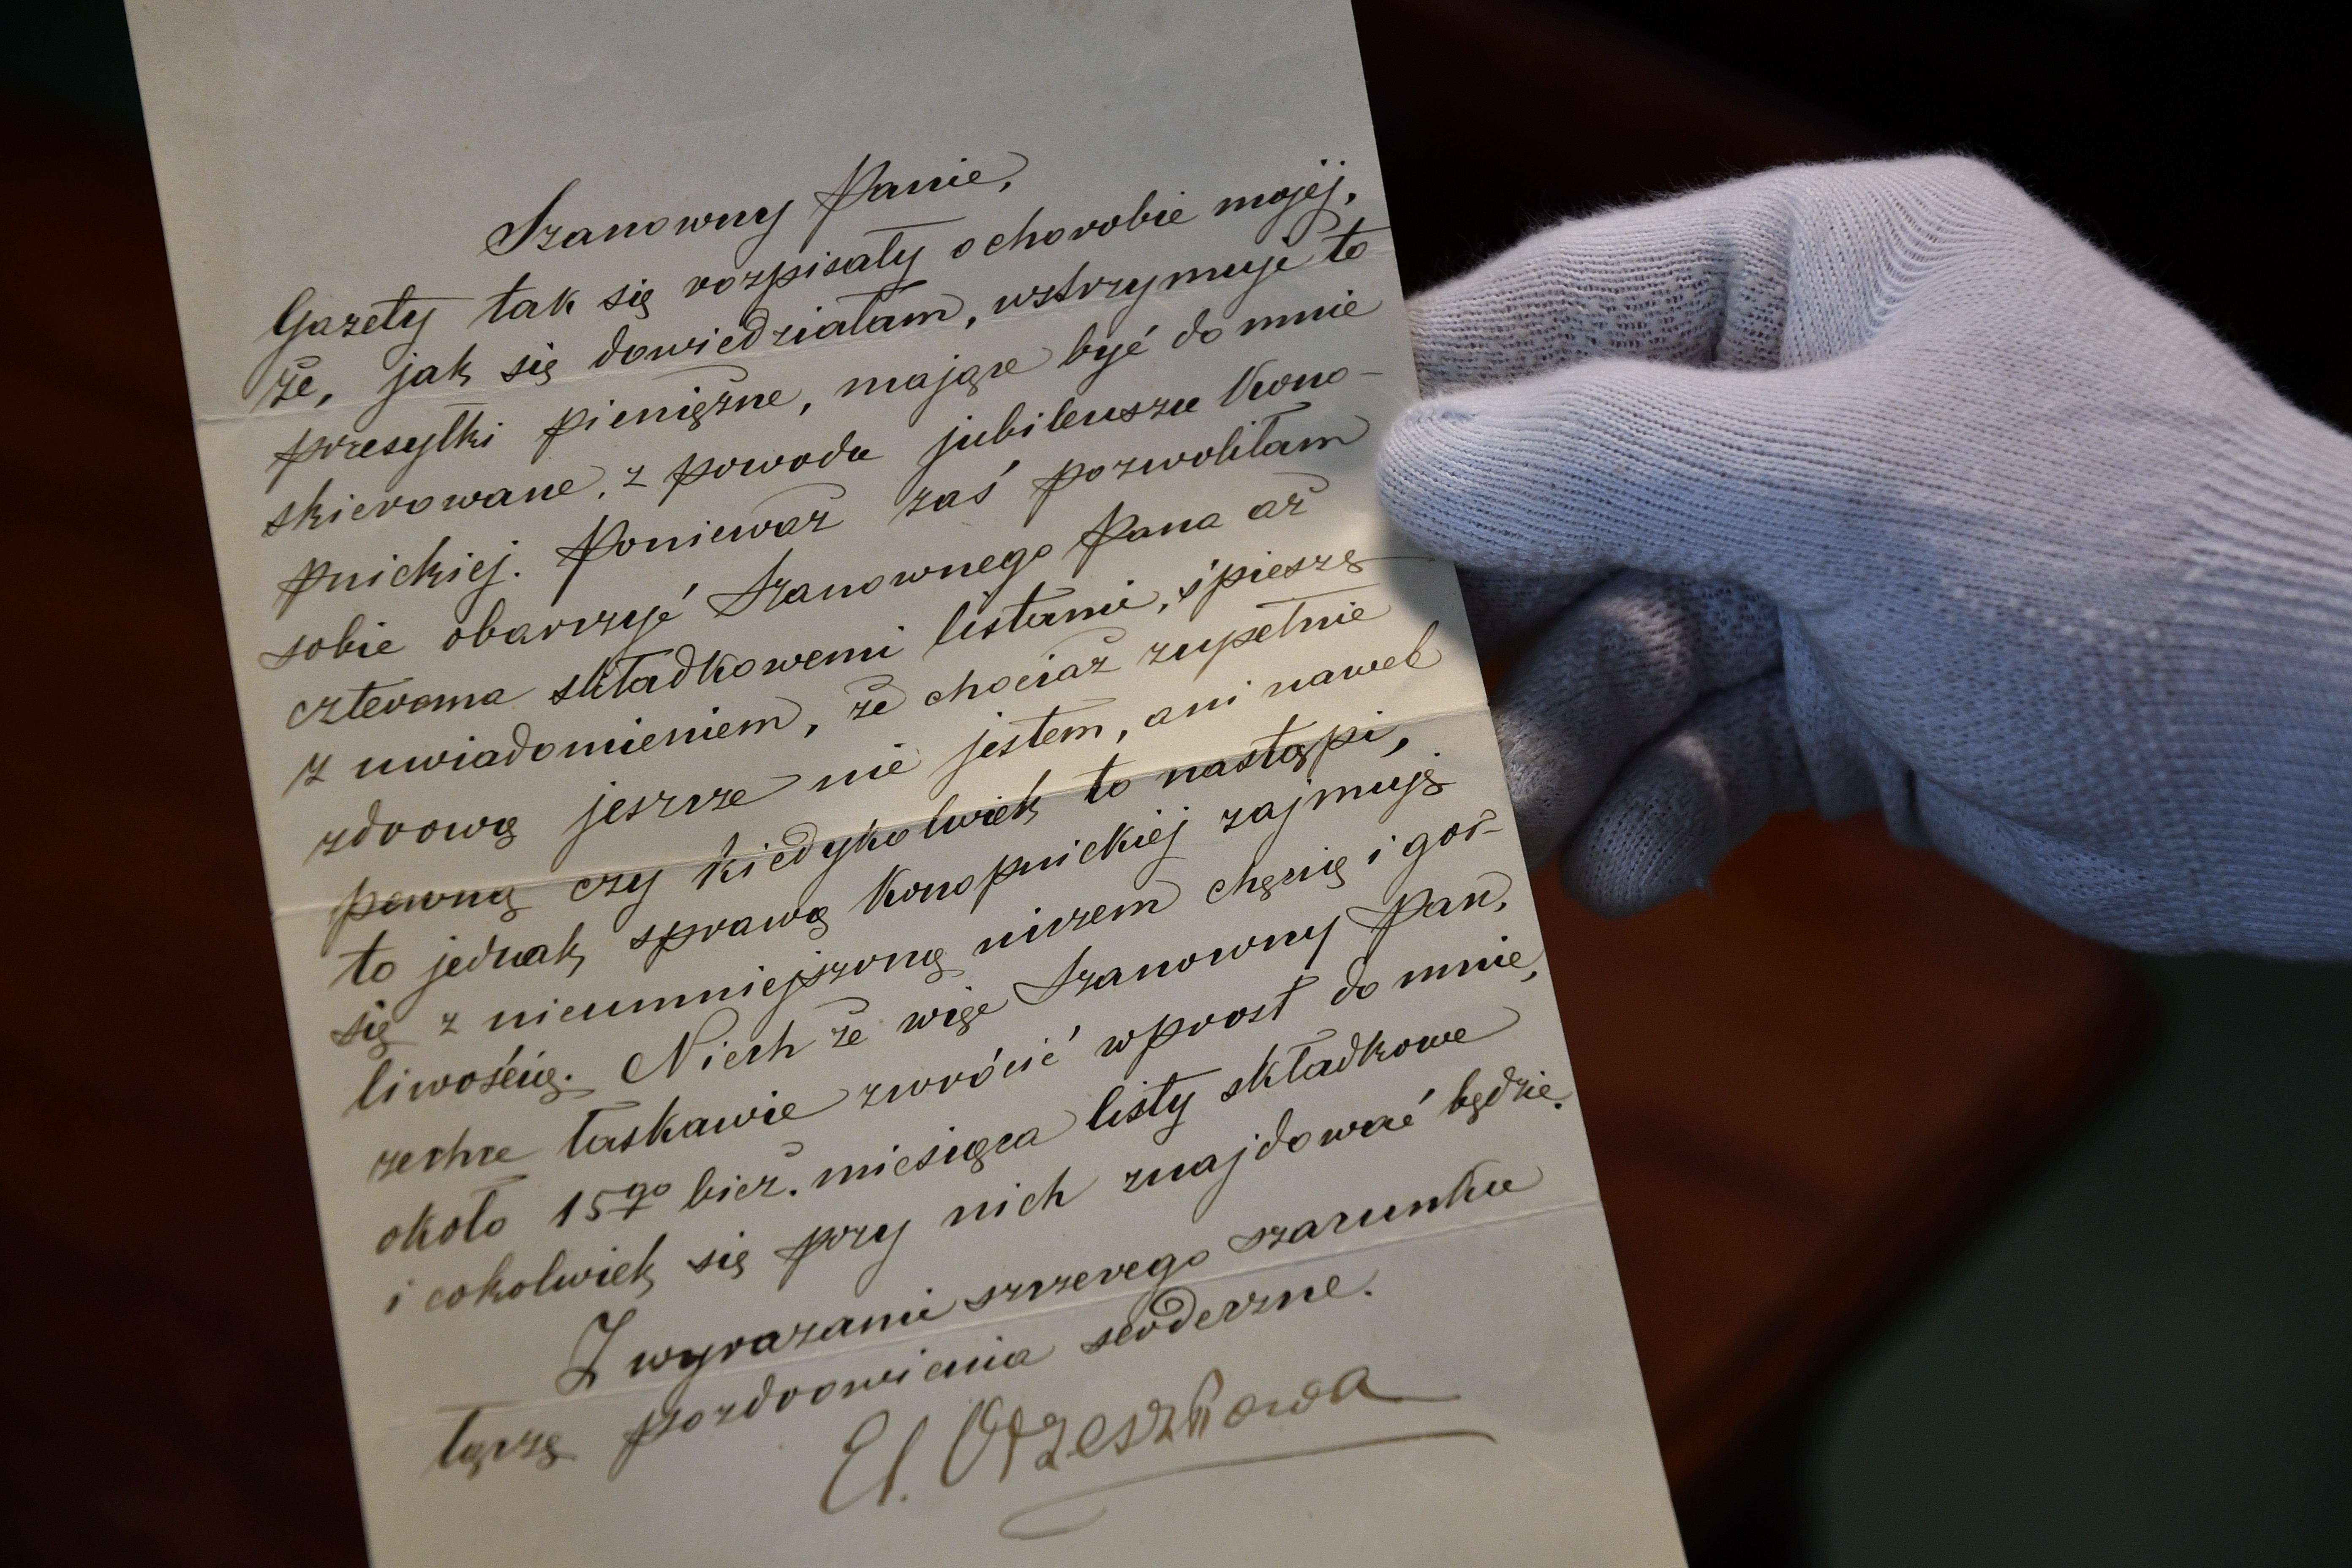 Szanowny Panie,
Gazety tak się rozpisały o chorobie mojéj,
że, jak się dowiedziałam, wstrzymuje to
przesyłki pieniężne, mające być do mnie
skierowane, z powodu jubileuszu Kono-
pnickiej. Ponieważ zaś pozwoliłam
sobie obarczyć Szanownego Pana aż
czterema składkowemi listami, śpieszę
z uwiadomieniem, że chociaż zupełnie
zdrową jeszcze nie jestem, ani nawet
pewną czy kiedykolwiek to nastąpi,
to jednak sprawą Konopnickiej zajmuję
się z nieumniejszoną niczem chęcią i gor-
liwością. Niech że więc Szanowny Pan,
zechce łaskawie zwrócić wprost do mnie,
około 15go bież. miesiąca listy składkowe
i cokolwiek się przy nich znajdować będzie.
Z wyrazami szczerego szacunku
łączę pozdrowienia serdeczne.
El. Orzeszkowa